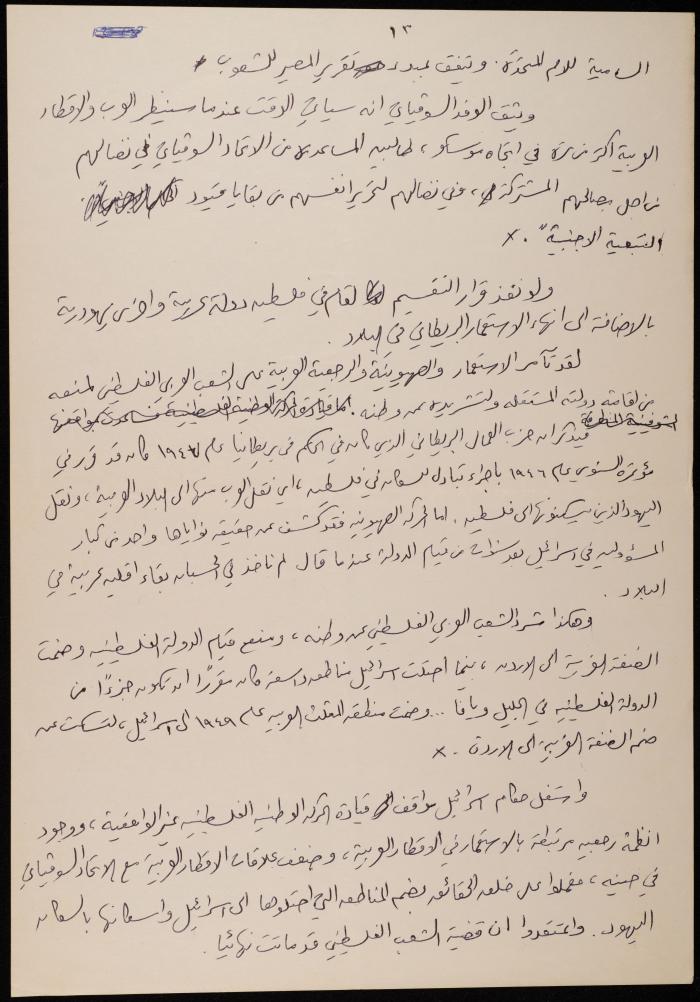 ١٣
السامية للامم المتحدة. وتتفق بمبدء تقرير المصير للشعوب
ويثق الوفد السوڤياتي انه سيأتي الوقت عندما سينظر العرب والاقطار
العربية اكثر من مرة في اتجاه موسكو، طالبين المساعدة من الاتحاد السوڤياتي في نضالهم
من اجل مصالحهم المشتركة، وفي نضالهم لتحرير انفسهم من بقايا قيود
التبعية الاجنبية". ×
ولو نفذ قرار التقسيم لقام في فلسطين دولة عربية واخرى يهودية
بالاضافة الى انهاء الاستعمار البريطاني في البلاد.
لقد تآمر الاستعمار والصهيونية والرجعية العربية على الشعب العربي الفلسطيني لمنعه
من اقامة دولته المستقلة ولتشريده عن وطنه. اما قيادة الحركة الوطنية الفلسطينية فساعدت بمواقفها
فيذكر ان حزب العمال البريطاني الذي كان في الحكم في بريطانيا عام ١٩٤٧ كان قد قرر في
مؤتمره السنوي عام ١٩٤٦ باجراء تبادل للسكان في فلسطين، اي نقل العرب منها الى البلاد العربية، ونقل
اليهود الذين يسكنونها الى فلسطين. اما الحركة الصهيونية فقد كشف عن حقيقة نواياها واحد من كبار
المسؤولين في اسرائيل بعد سنوات من قيام الدولة عندما قال لم ناخذ في الحسبان بقاء اقلية عربية في
البلاد.
وهكذا شرد الشعب العربي الفلسطيني عن وطنه، ومنع قيام الدولة الفلسطينية وضمت
الضفة الغربية الى الاردن، بينما احتلت اسرائيل مناطق واسعة كان مقررًا ان تكون جزءًا من
الدولة الفلسطينية في الجليل ويافا... وضمت منطقة المثلث العربية عام ١٩٤٩ الى اسرائيل، لتسكت عن
ضم الضفة الغربية الى الاردن. ×
واستغل حكام اسرائيل مواقف قيادة الحركة الوطنية الفلسطينية غير الواقعية، ووجود
انظمة رجعية مرتبطة بالاستعمار في الاقطار العربية، وضعف علاقات الاقطار العربية مع الاتحاد السوڤياتي
في حينه، فعملوا على خلق الحقائق بضم المناطق التي احتلوها الى اسرائيل واسكانها بالسكان
اليهود. واعتقدوا ان قضية الشعب الفلسطيني قد ماتت نهائيا.